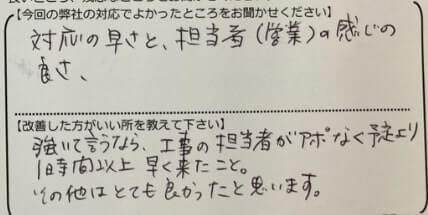 【今回の弊社の対応でよかったところをお聞かせください】
対応の早さと、担当者(営業)の感じの
良さ、
【改善した方がいい所を教えて下さい】
強いて言うなら、工事の担当者がアポなく予定より
1時間以上早く来たこと。
その他はとても良かったと思います。